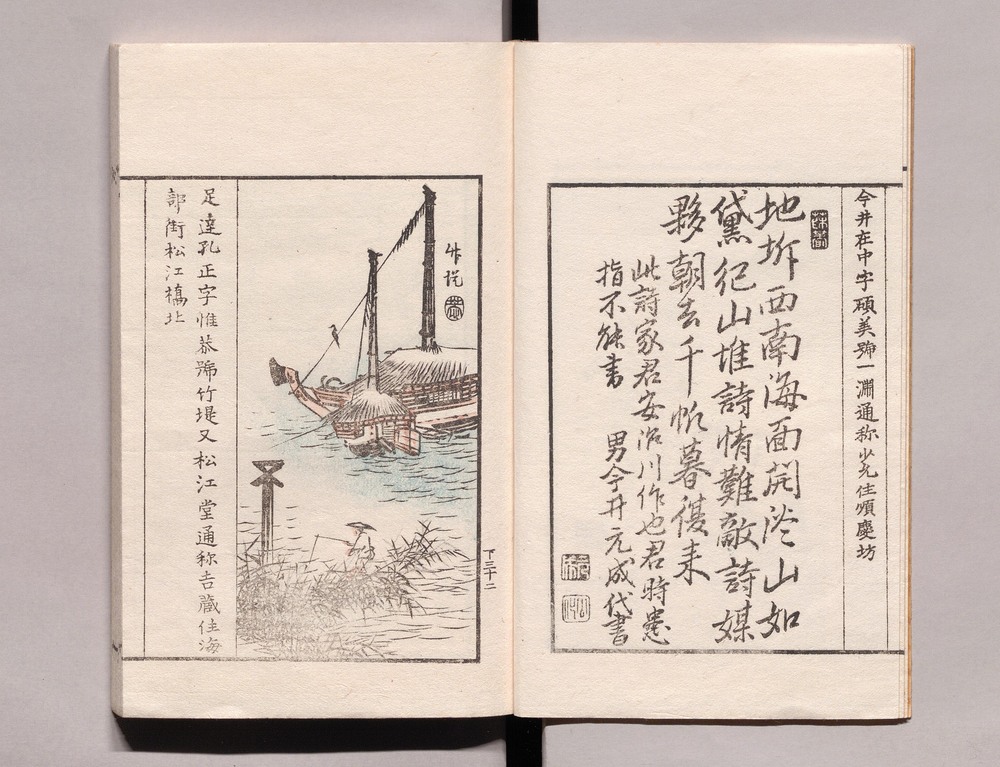 今井在中字碩美號一淵通称少亮住順慶坊
地坼西南海面開淡山如
黛紀山堆詩情難敵詩媒
夥朝去千帆暮復来
此詩家君安治川作也君時患
指不能書　男今井元成代書
下三十二
竹堤
足達孔正字惟恭號竹堤又松江堂通称吉蔵住海
部街松江橋北